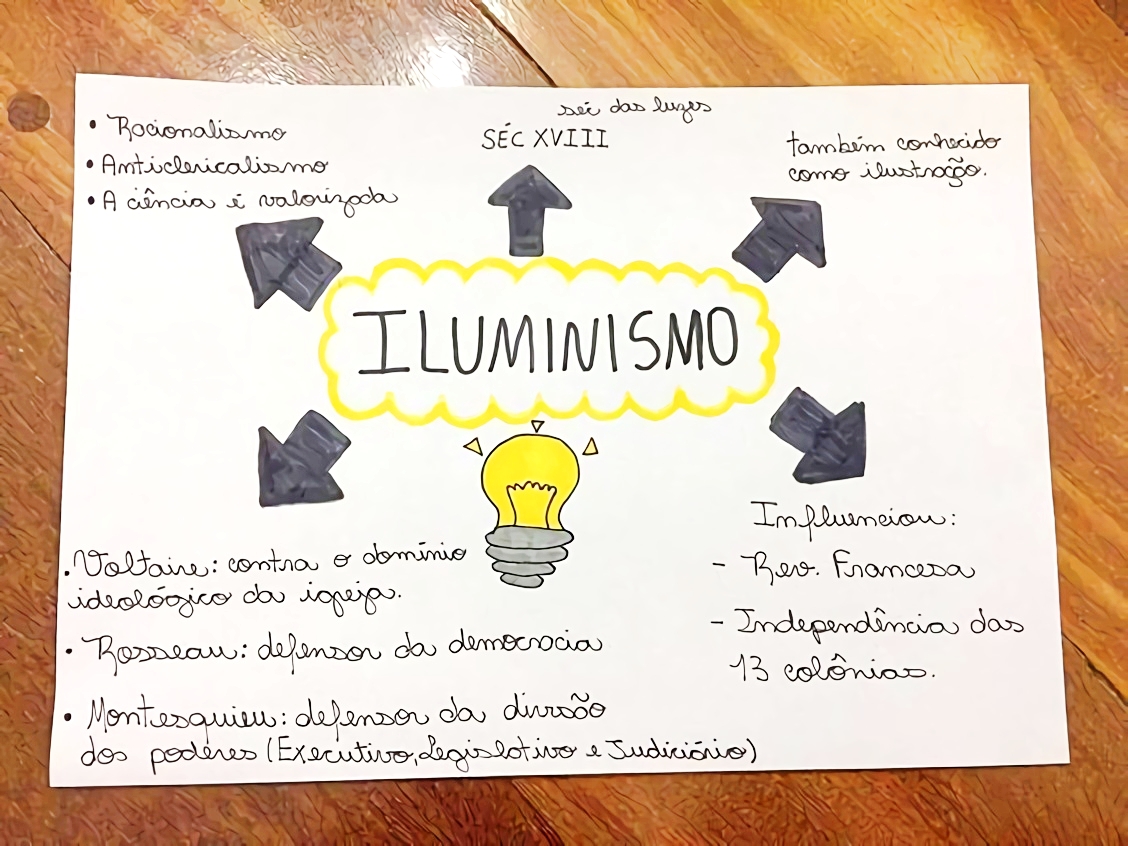 • Racionalismo
• Anticlericalismo
• A ciência é valorizada
séc das luzes
SÉC XVIII
também conhecido
como ilustração.
ILUMINISMO
. Voltaire: contra o domínio
ideológico da igreja.
• Rosseau: defensor da democracia
• Montesquieu: defensor da divisão
dos poderes (Executivo, Legislativo e Judiciário)
Influenciou:
- Rev. Francesa
- Independência das
13 colônias.